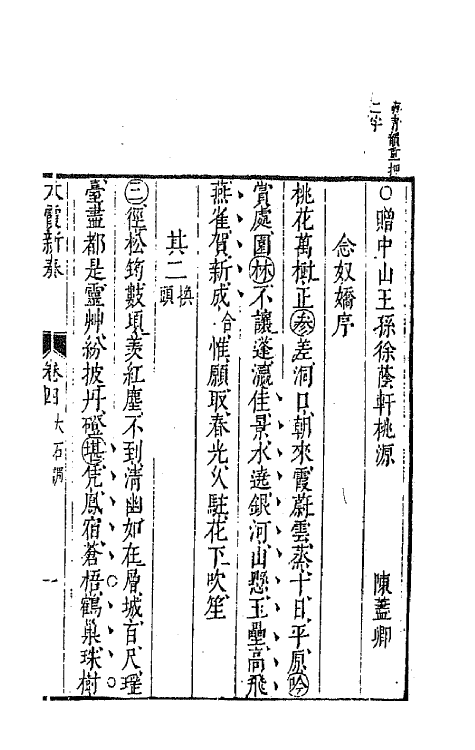 庚青韻重押
二字
○贈中山王孫徐蔭軒桃源　陳藎卿
念奴嬌序
桃花萬樹正參差洞口朝來霞蔚雲蒸十日平原吟
賞處園林不讓蓬瀛佳景水遶銀河山懸玉壘高飛
燕雀賀新成合惟願取春光久駐花下吹笙
其二換頭
三徑松筠數頃羨紅塵不到清幽如在層城百尺瑤
臺盡都是靈艸紛披丹磴堪凭鳳宿蒼梧鶴巢珠樹
太霞新奏　卷四　大石調　一